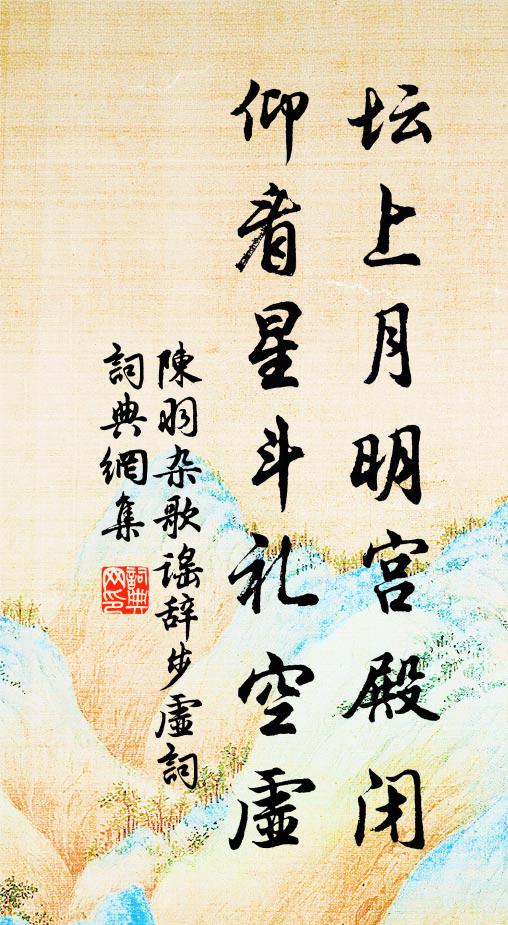 坛上月明宫殿闭
仰看星斗礼空虚
陳羽杂歌谣辞步虚詞
詞典網集
詞典网印